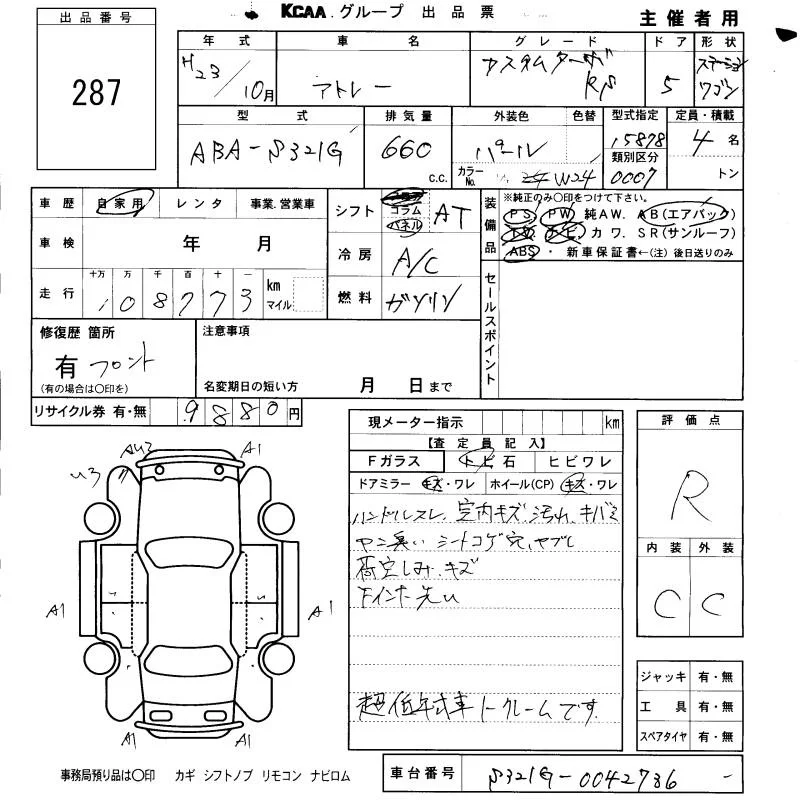 出品番号
287
KCAA グループ 出品票
主催者用
年式 車名 グレード ドア 形状
H23/10月 アトレー カスタムターボRS 5 ステーションワゴン
型式 排気量 外装色 色替 型式指定 定員・積載
ABA-S321G 660 c.c. パール 15878 4名
カラーNo. W24 類別区分 0007 トン
車歴 自家用 レンタ 事業.営業車
シフト フロア コラム パネル AT
装備品 ※純正のみ○印をつけて下さい。
PS PW 純AW. AB(エアバック)
カワ. SR(サンルーフ)
ABS・新車保証書←(注)後日送りのみ
車検 年 月
冷房 A/C
走行 十万 万 千 百 十 一
108773 km マイル
燃料 ガソリン
セールスポイント
修復歴 箇所
有 フロント
(有の場合は○印を)
注意事項
名変期日の短い方 月 日まで
リサイクル券 有・無 9880円
現メーター指示 km
【査定員記入】
Fガラス トビ石 ヒビワレ
ドアミラー キズ・ワレ ホイール(CP) キズ・ワレ
ハンドルスレ、室内キズ.汚れ.キバミ
ヤニ臭い シートコゲ穴、ヤブレ
荷室しみ.キズ
下インナー
超低年式車ノークレームです.
評価点
R
内装 外装
C C
ジャッキ 有・無
工具 有・無
スペアタイヤ 有・無
AU3 A1
U3
A1 A1
A1 A1
事務局預り品は○印 カギ シフトノブ リモコン ナビロム
車台番号 S321G-0042736 -